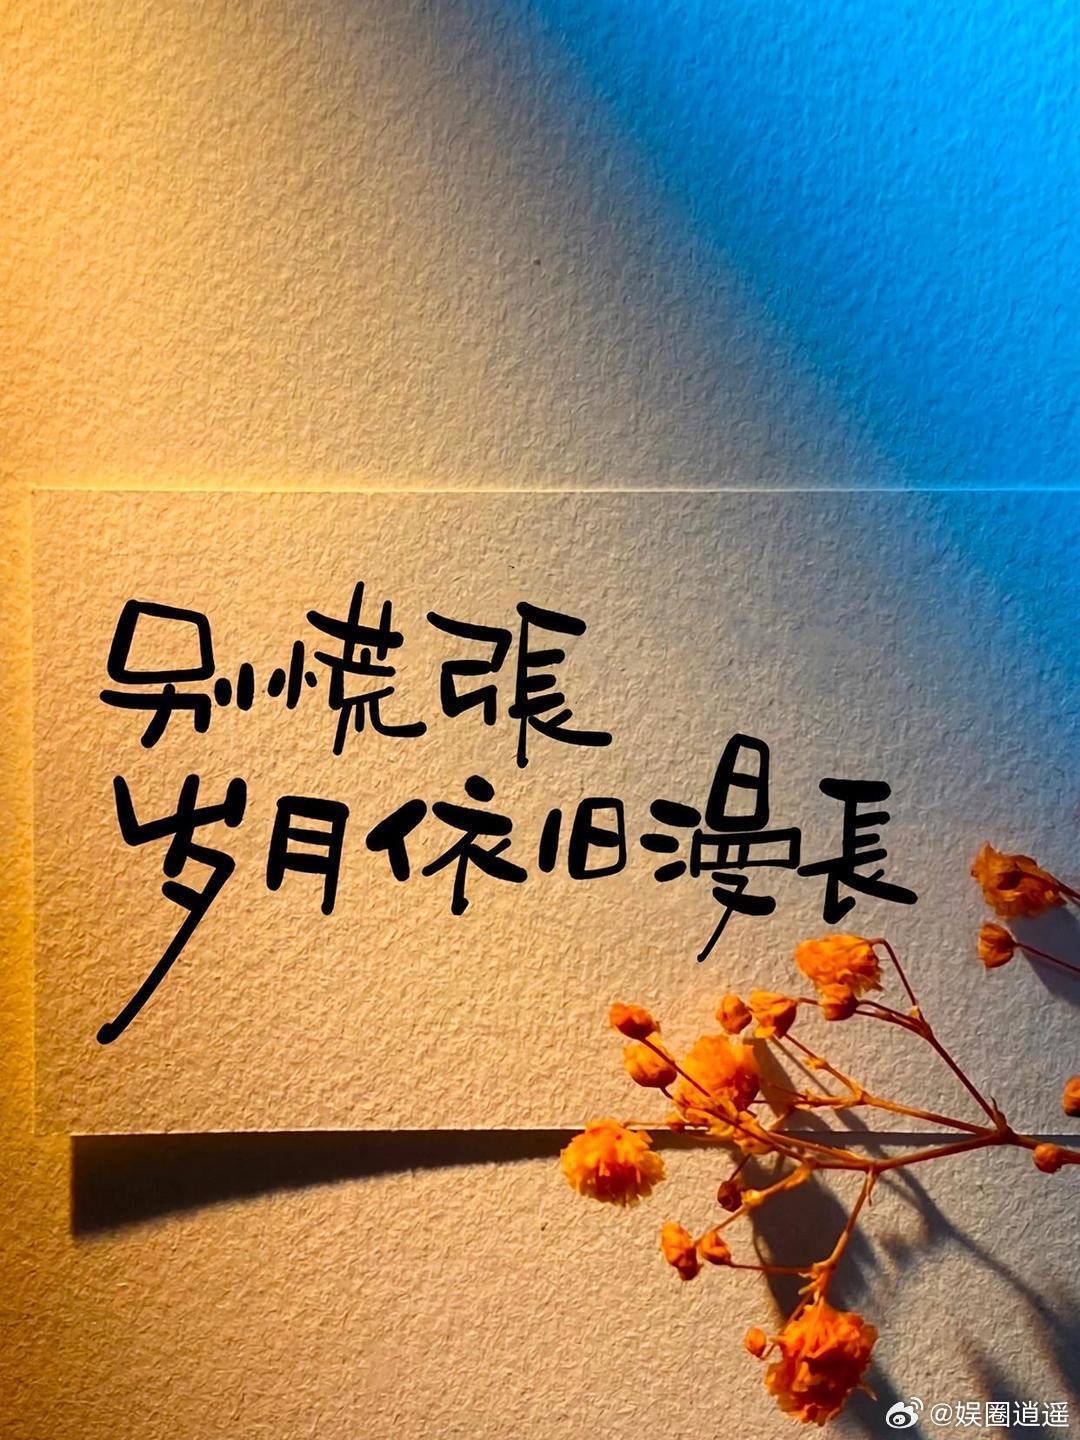 别慌張
岁月依旧漫長
@娱圈逍遥